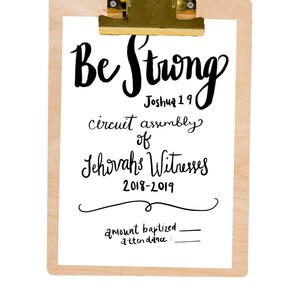 Be Strong
Joshua 1 9
circuit assembly
of
Jehovahs Witnesses
2018-2019
amount baptized ____
attendance : ____